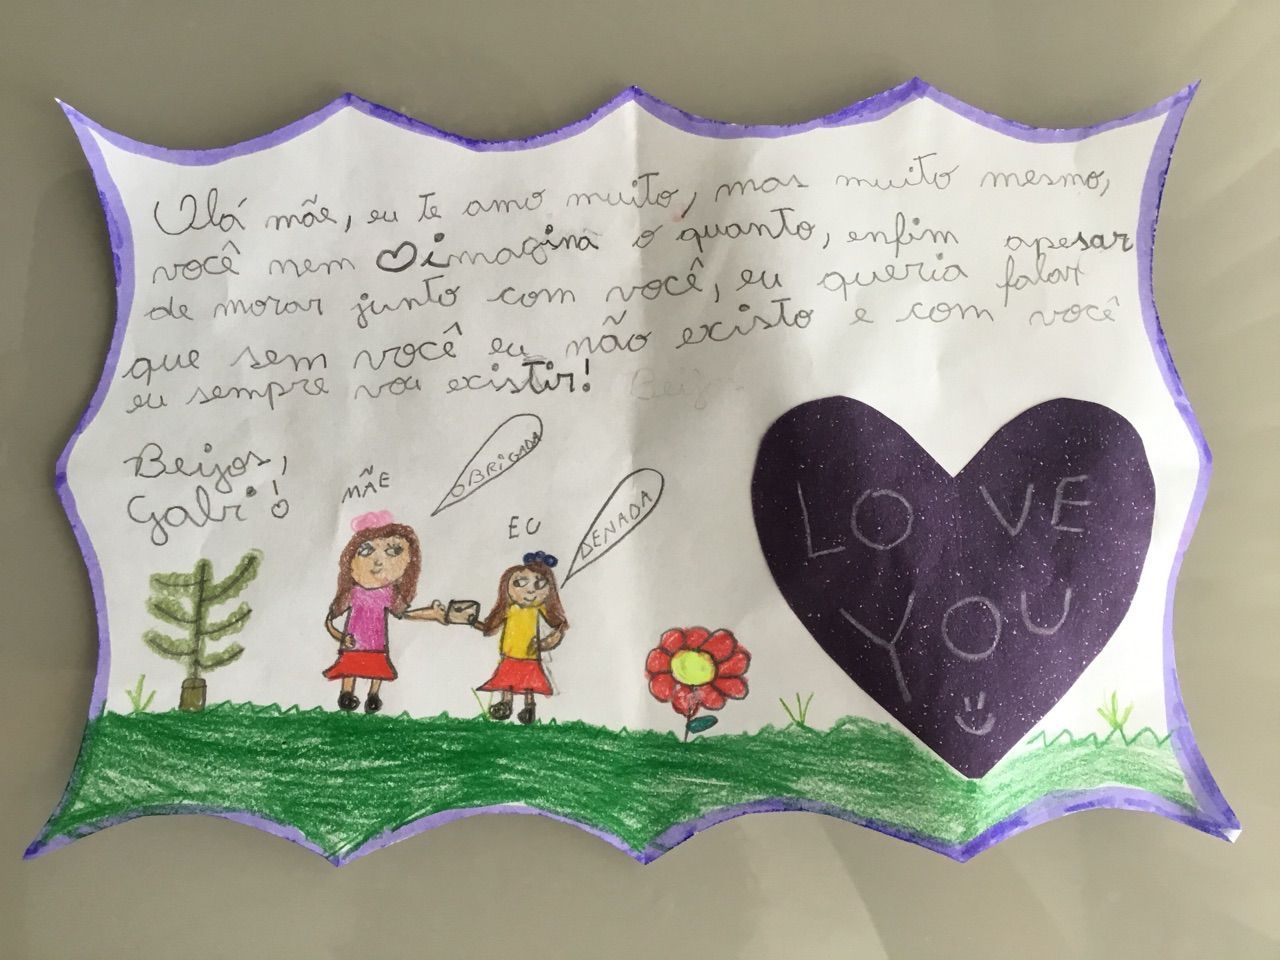 Olá mãe, eu te amo muito, mas muito mesmo,
você nem imagina o quanto, enfim apesar
de morar junto com você, eu queria falar
que sem você eu não existo e com você
eu sempre vou existir! Beijos
Beijos,
Gabi!
MÃE
OBRIGADA
EU
DENADA
LOVE
YOU